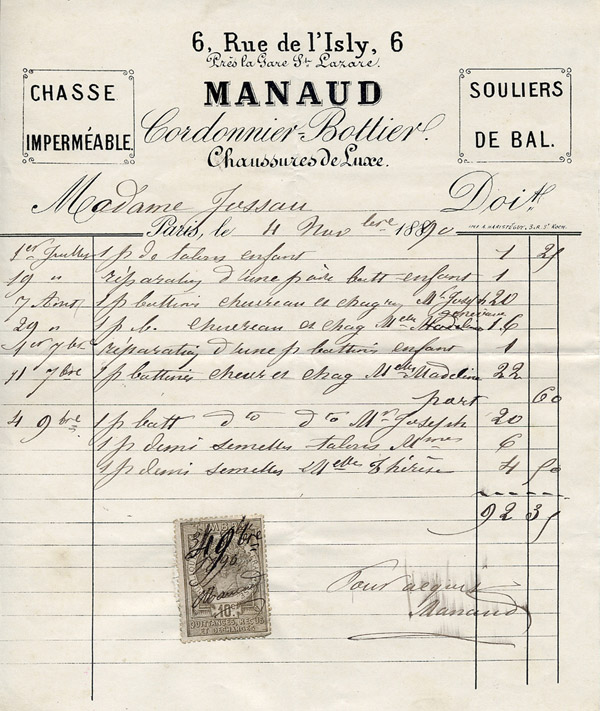 6, Rue de l'Isly, 6
Près la Gare St. Lazare.
MANAUD
Cordonnier-Bottier.
Chaussures de Luxe.
CHASSE
IMPERMÉABLE.
SOULIERS
DE BAL.
Madame Jossau Doit
Paris, le 4 Novbre 1890
1er Juillet 1 p de talons enfant 1 25
19 " réparation d'une paire bott enfant 1
7 Aout 1 p bottines chevreau et chagrin Mr Joseph 20
29 " 1 p b. chevreau et chag Melle Geneviève 16
1er 7bre réparation d'une p bottines enfant 1
11 7bre 1 p bottines chevr et chag Melle Madeleine 22
port 60
4 9bre 1 p bott do do Mr Joseph 20
1 p demi semelles talons Mme 6
1 p demi semelles Melle Thérèse 4 50
92 35
4 9bre
1890
Manaud
10c
QUITTANCES, REÇUS
ET DÉCHARGES
Pour acquit
Manaud